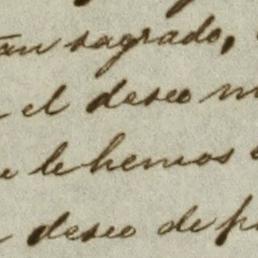 tan sagrado,
el deseo
le hemos
deseo de